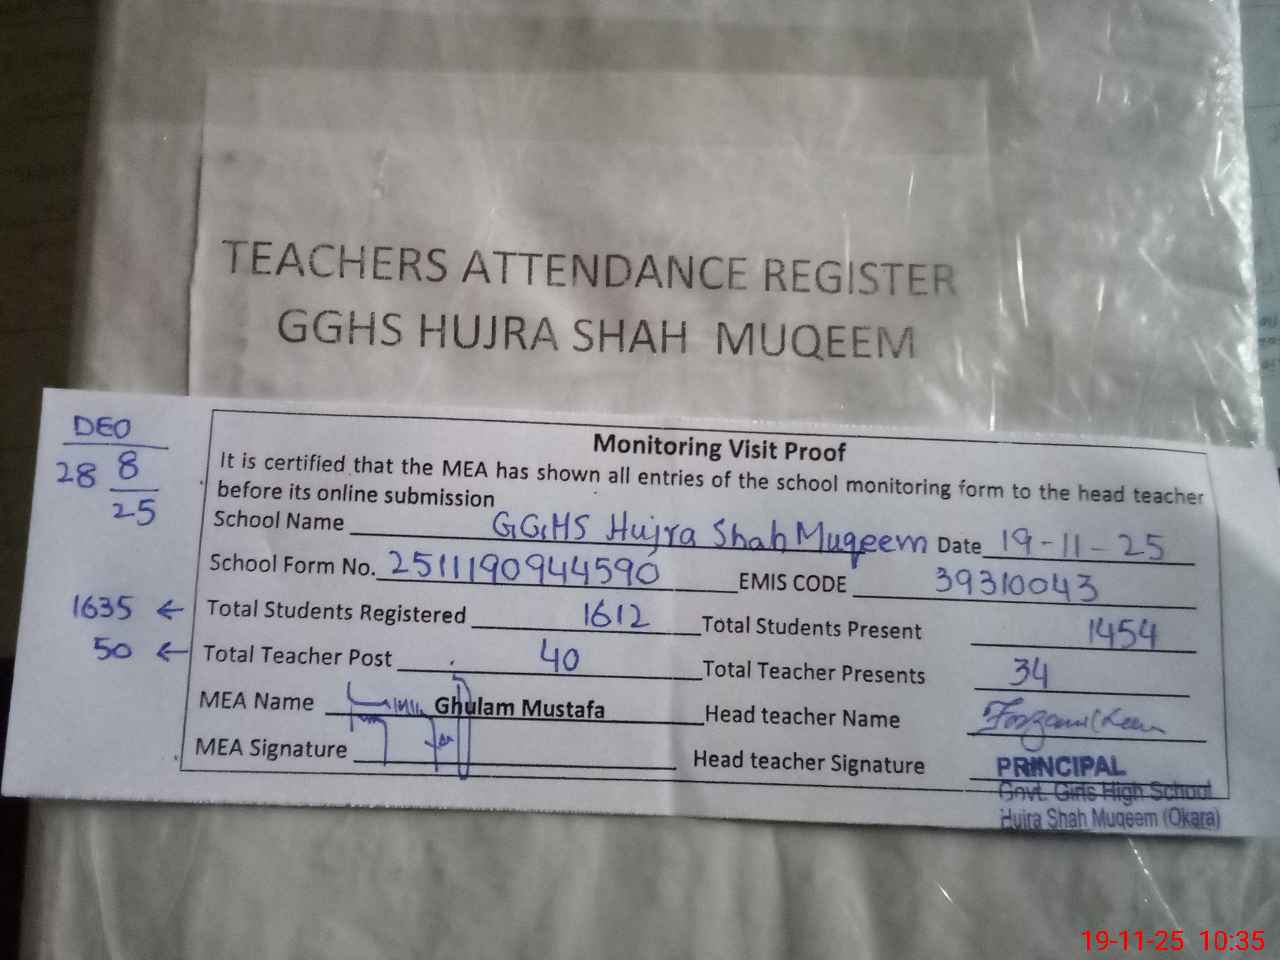 TEACHERS ATTENDANCE REGISTER
GGHS HUJRA SHAH MUQEEM
DEO
28 8
25
1635 ←
50 ←
Monitoring Visit Proof
It is certified that the MEA has shown all entries of the school monitoring form to the head teacher
before its online submission
School Name GGHS Hujra Shah Muqeem Date 19-11-25
School Form No. 2511190944590 EMIS CODE 39310043
Total Students Registered 1612 Total Students Present 1454
Total Teacher Post 40 Total Teacher Presents 34
MEA Name Ghulam Mustafa Head teacher Name
MEA Signature Head teacher Signature
PRINCIPAL
Govt. Girls High School
Hujra Shah Muqeem (Okara)
19-11-25 10:35